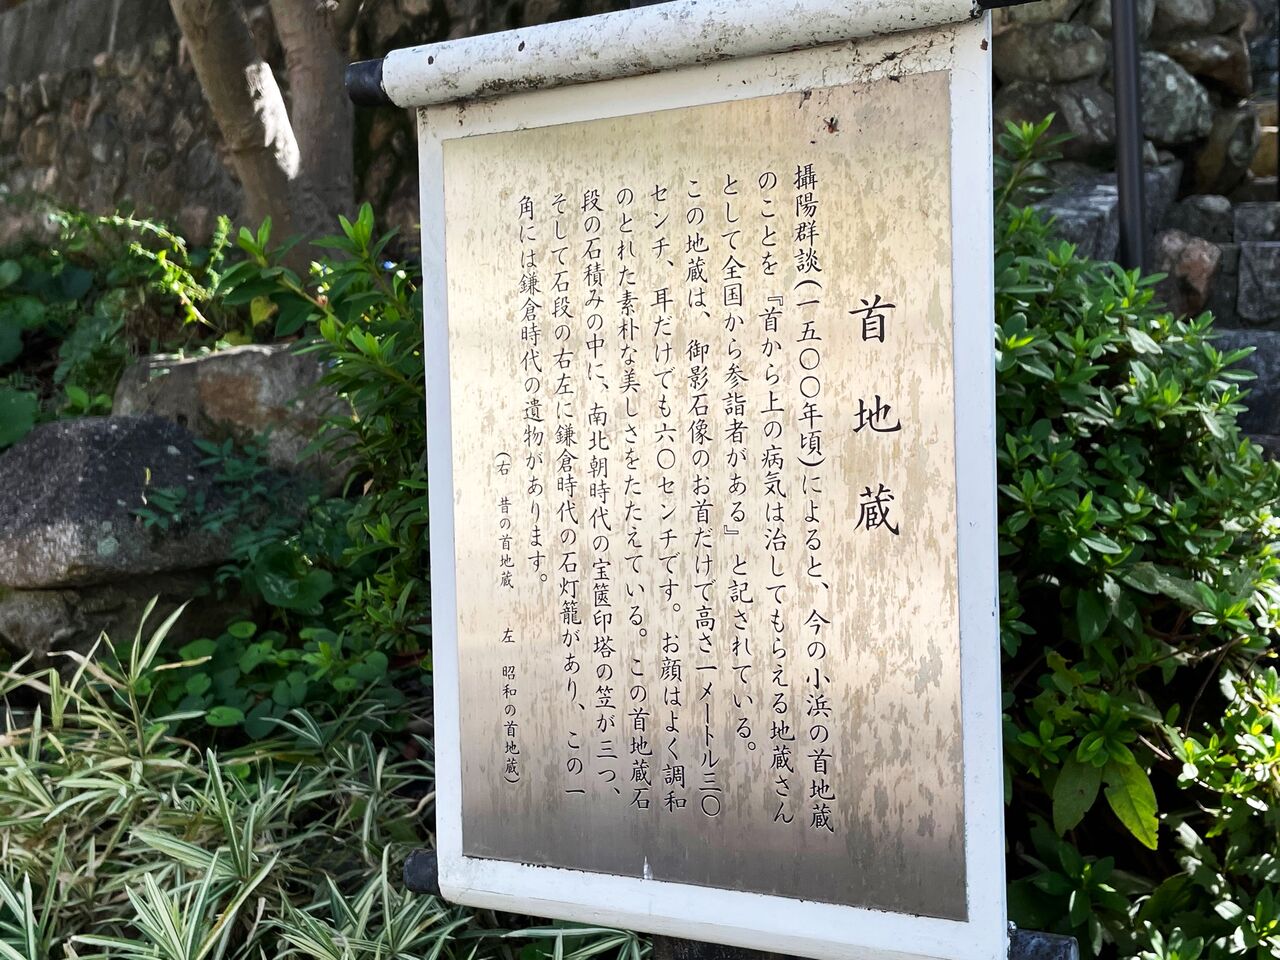 首地蔵
攝陽群談(一五〇〇年頃)によると、今の小浜の首地蔵
のことを『首から上の病気は治してもらえる地蔵さん
として全国から参詣者がある』と記されている。
この地蔵は、御影石像のお首だけで高さ一メートル三〇
センチ、耳だけでも六〇センチです。お顔はよく調和
のとれた素朴な美しさをたたえている。この首地蔵石
段の石積みの中に、南北朝時代の宝篋印塔の笠が三つ、
そして石段の右左に鎌倉時代の石灯籠があり、この一
角には鎌倉時代の遺物があります。
(右 昔の首地蔵 左 昭和の首地蔵)